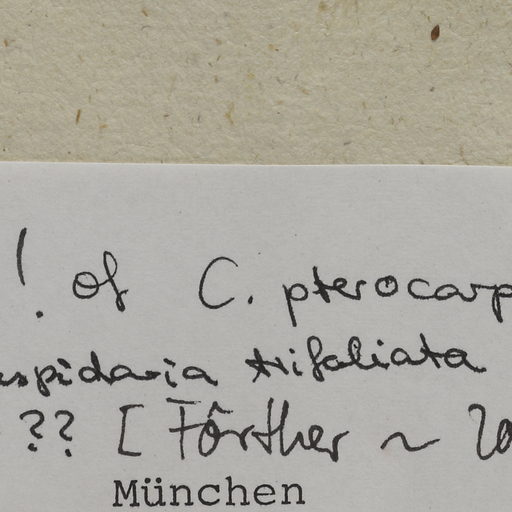 ! of C. pterocarp
uspidaria trifoliata
?? [ Förther ~ 20
München